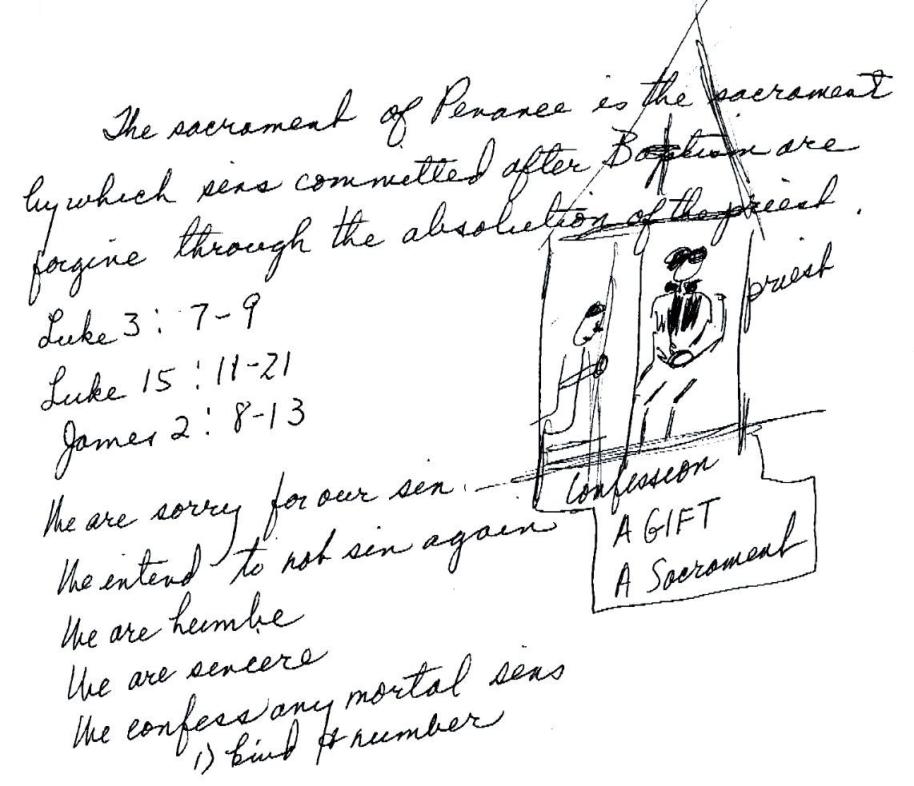 The sacrament of Penance is the sacrament
by which sins committed after Baptism are
forgive through the absolution of the priest.
priest
Luke 3: 7-9
Luke 15: 11-21
James 2: 8-13
We are sorry for our sin.
We intend to not sin again
We are humbe
We are sencere
We confess any mortal sins
1) kind & number
Confession
A GIFT
A Sacrament